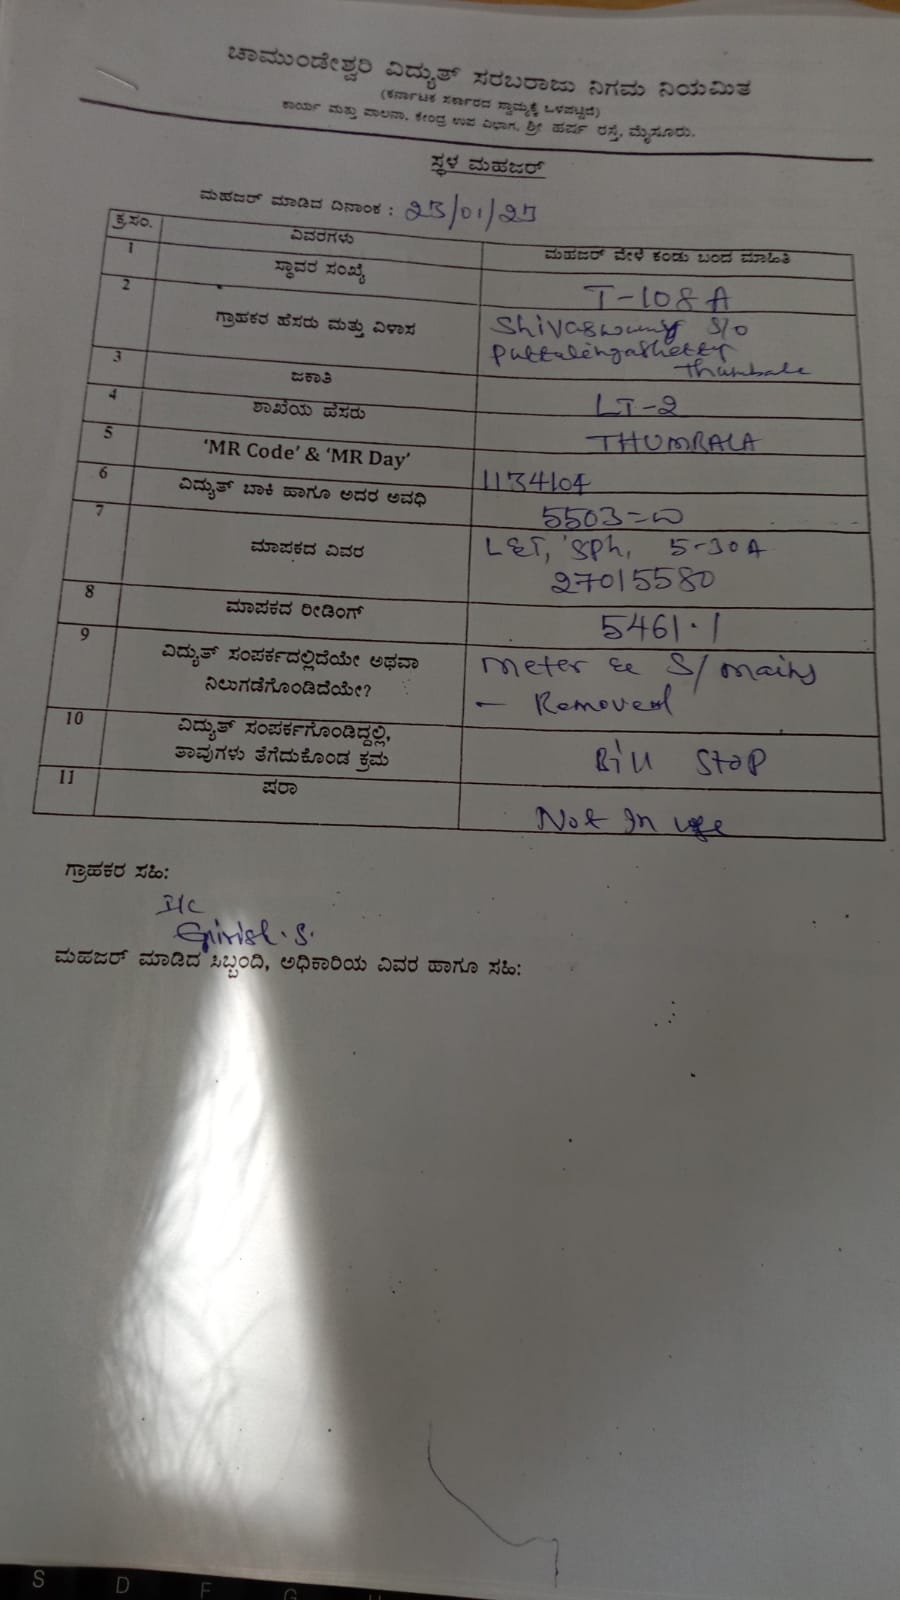 ಚಾಮುಂಡೇಶ್ವರಿ ವಿದ್ಯುತ್ ಸರಬರಾಜು ನಿಗಮ ನಿಯಮಿತ
(ಕರ್ನಾಟಕ ಸರ್ಕಾರದ ಸ್ವಾಮ್ಯಕ್ಕೆ ಒಳಪಟ್ಟಿದೆ)
ಕಾರ್ಯ ಮತ್ತು ಪಾಲನಾ, ಕೇಂದ್ರ ಉಪ ವಿಭಾಗ, ಶ್ರೀ ಹರ್ಷ ರಸ್ತೆ, ಮೈಸೂರು.
ಸ್ಥಳ ಮಹಜರ್
ಮಹಜರ್ ಮಾಡಿದ ದಿನಾಂಕ : 23/01/23
ಕ್ರ.ಸಂ. ವಿವರಗಳು ಮಹಜರ್ ವೇಳೆ ಕಂಡು ಬಂದ ಮಾಹಿತಿ
1 ಸ್ಥಾವರ ಸಂಖ್ಯೆ T-108A
2 ಗ್ರಾಹಕರ ಹೆಸರು ಮತ್ತು ವಿಳಾಸ Shivaswamy S/o
Puttalingashetty
Thumbala
3 ಜಕಾತಿ LT-2
4 ಶಾಖೆಯ ಹೆಸರು THUMBALA
5 'MR Code' & 'MR Day' 1134104
6 ವಿದ್ಯುತ್ ಬಾಕಿ ಹಾಗೂ ಅದರ ಅವಧಿ 5503=00
7 ಮಾಪಕದ ವಿವರ L&T, Sph, 5-30A
27015580
8 ಮಾಪಕದ ರೀಡಿಂಗ್ 5461.1
9 ವಿದ್ಯುತ್ ಸಂಪರ್ಕದಲ್ಲಿದೆಯೇ ಅಥವಾ Meter & S/mains
ನಿಲುಗಡೆಗೊಂಡಿದೆಯೇ? – Removed
10 ವಿದ್ಯುತ್ ಸಂಪರ್ಕಗೊಂಡಿದ್ದಲ್ಲಿ, Bill Stop
ತಾವುಗಳು ತೆಗೆದುಕೊಂಡ ಕ್ರಮ
11 ಷರಾ Not In use
ಗ್ರಾಹಕರ ಸಹಿ:
I/C
Girish.S.
ಮಹಜರ್ ಮಾಡಿದ ಸಿಬ್ಬಂದಿ, ಅಧಿಕಾರಿಯ ವಿವರ ಹಾಗೂ ಸಹಿ:
S D F G